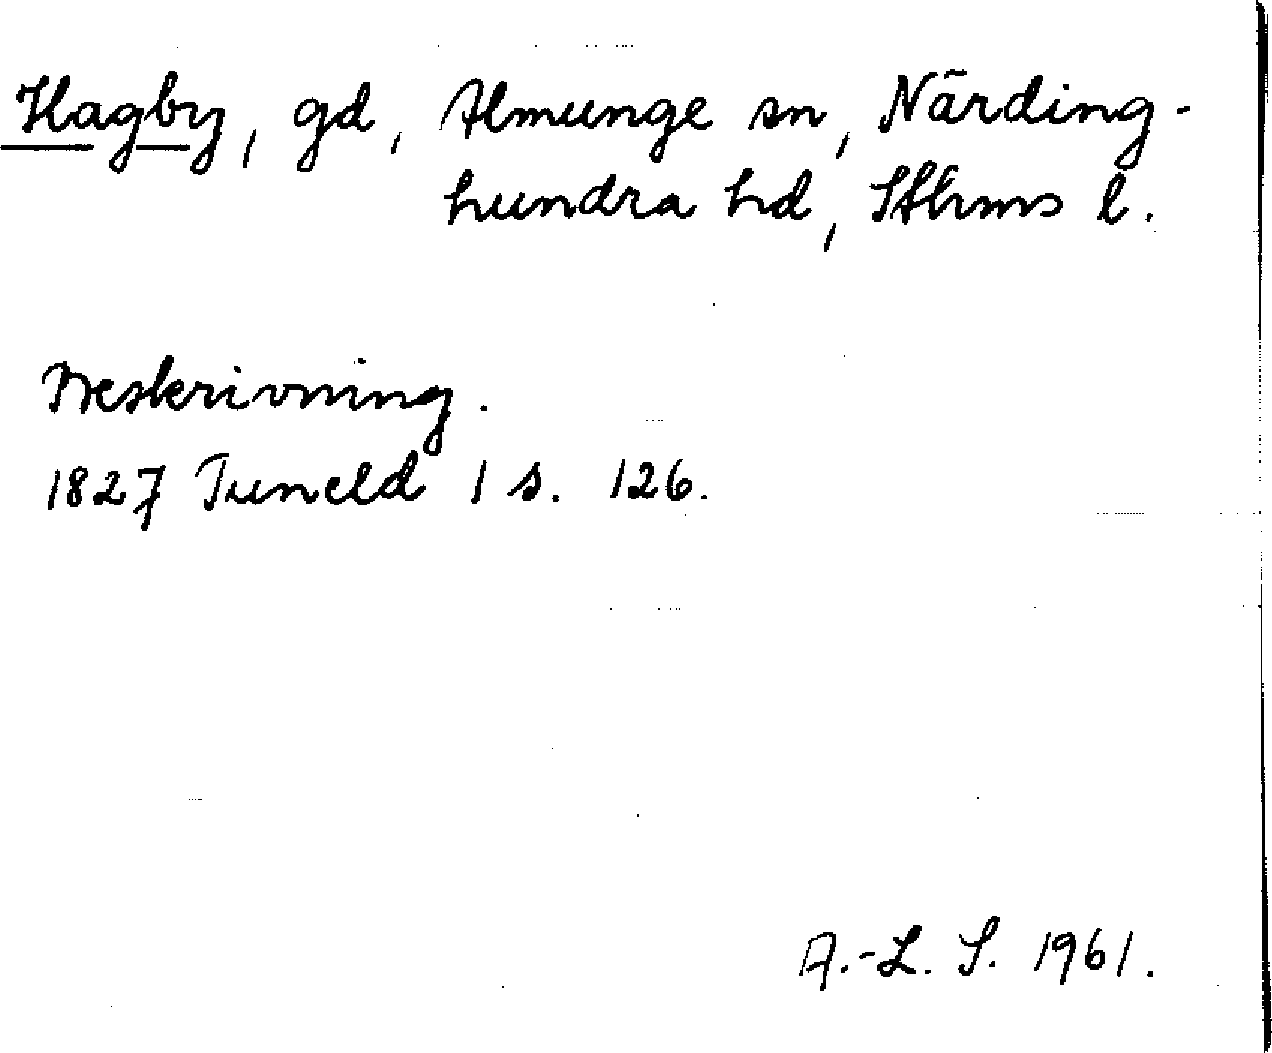 Hagby, gd, Almunge sn, Närding-
hundra hd, Sthms l.
Beskrivning.
1827 Tuneld I s. 126.
A.-L. S. 1961.